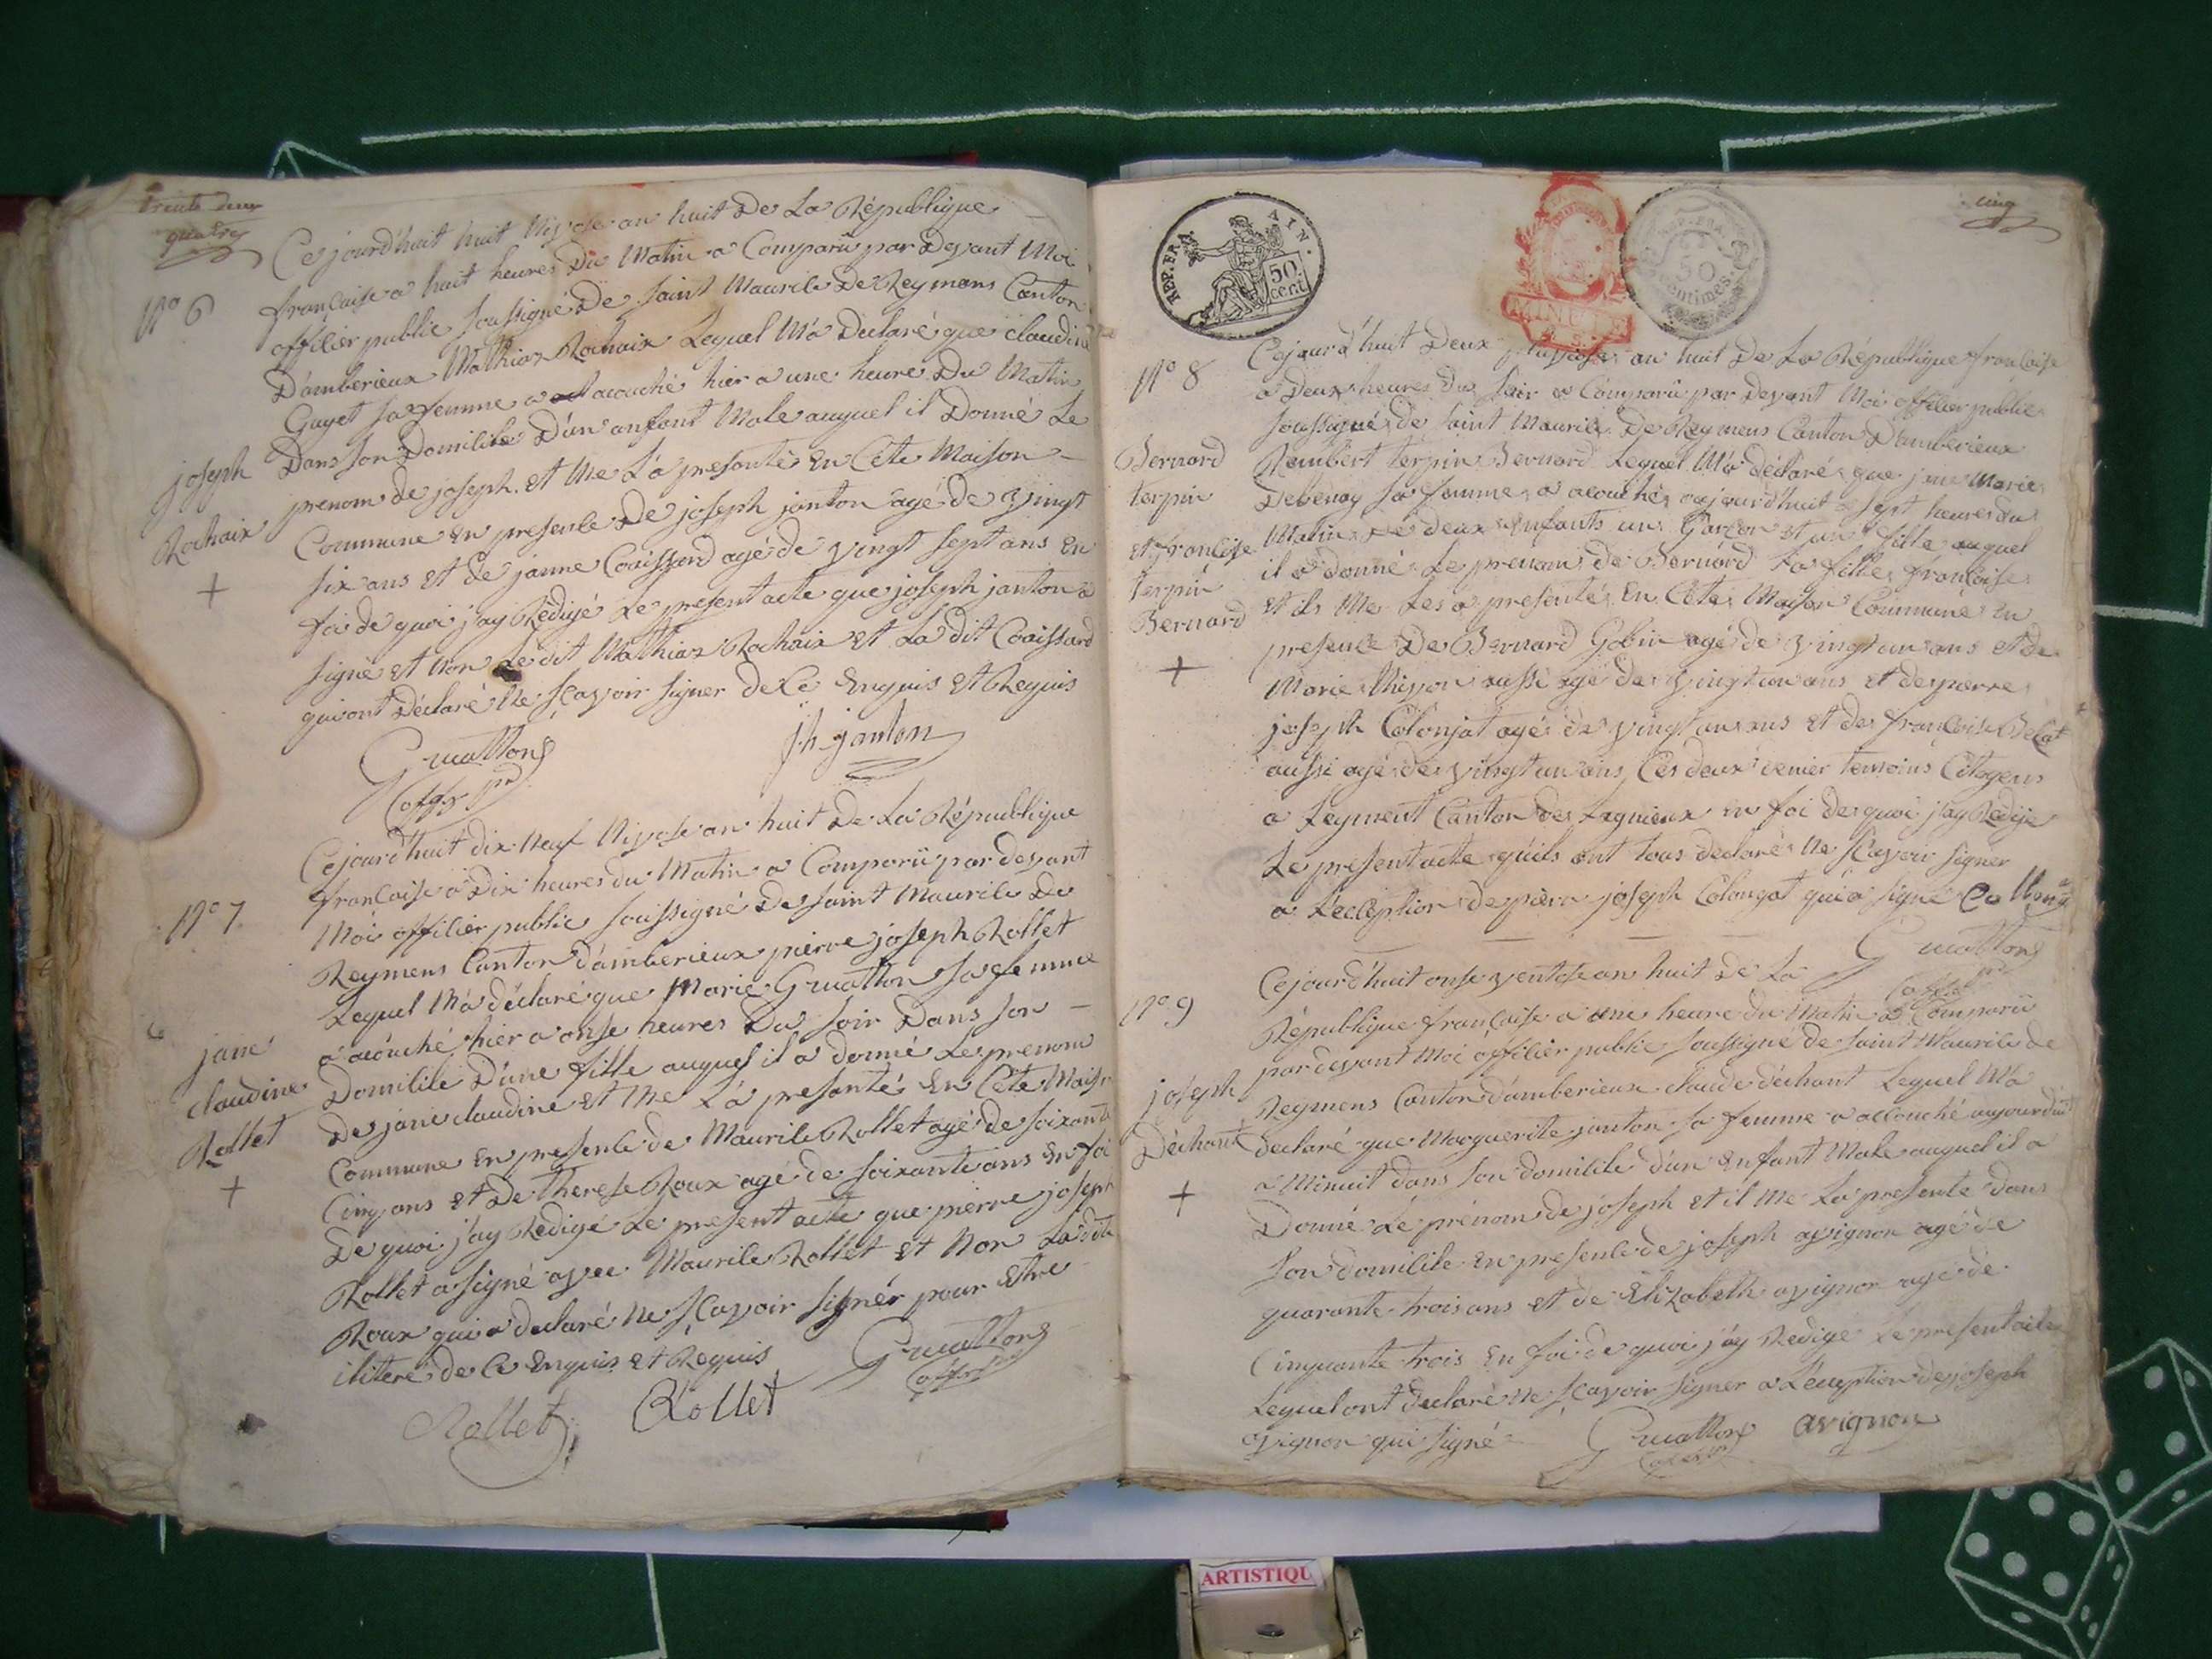 trente deux
quatre
N° 6
Cejourd'huit huit Nivose an huit De La République
française a huit heures Du Matin a Comparü par Devant Moi
officier public soussigné De Saint Maurice De Reymens Canton
D'amberieux Mathias Rochaix Lequel M'a Declaré que claudine
Guyet sa femme a acouché hier a une heure Du Matin
joseph
Rochaix
+
Dans son Domicile D'un anfant Male auquel il Donné Le
prenom de joseph. et Me L'a presonté En Cete Maison
Commune En presence De joseph janton agé de vingt
six ans et de janne Coaissard agé de vingt sept ans En
foi de quoi j'ay Redigé Le present acte que joseph janton a
signé et Non Le dit Mathias Rochaix et La dit Coaissard
qui ont Déclaré Ne sçavoir signer de Ce Enquis et Requis
Gruatton
off. p.
jh janton
N° 7
Cejourd'huit dix Neuf Nivose an huit De La République
française a Dix heures du Matin a Comparü par devant
Moi officier public soussigné De saint Maurice De
Reymens Canton d'amberieux pierre joseph Rollet
Lequel M'a déclaré que Marie Gruatton sa femme
a acouché hier a onse heures Du soir Dans son
jane
claudine
Rollet
+
Domicile D'une fille auquel il a donné Le prenom
De jane claudine et Me L'a presanté En Cete Maison
Commune En presence de Maurice Rollet agé de soixante
Cinq ans et De therese Roux agé de soixante ans En foi
De quoi j'ay Redigé Le present acte que pierre joseph
Rollet a signé avec Maurice Rollet et Non La dite
Roux qui a declaré Ne sçavoir signér pour Etre
iliteré de Ce Enquis et Requis
Gruatton
off.
Rollet
Rollet
cinq
REP. FRA. AIN.
50 cent
REP. FRA.
50
centimes
MINUTE
N° 8
Cejourd'huit Deux an huit De La République françaisse
a Deux heures Du soir a Comparü par Devant Moi officier public
soussigné de saint Maurice De Reymens Canton D'amberieux
Bernard
terpin
et françoise
terpin
Bernard
+
Rembert terpin Bernard Lequel M'a déclaré que jane Marie
Debenay sa femme a acouché aujourd'huit a sept heures du
Matin De deux Enfants un Garçon et un fille auquel
il a donné Le prenom de Bernard La fille françoise
et ils Me Les a presenté En Cete Maison Commune En
presence De Bernard Gobin agé de vingt un ans et de
Marie aussi agé de vingt un ans et de pierre
joseph Colonjat agé de vingt un ans et de françoise Belat
aussi agé de vingt un ans Ces deux dernier temoins Citoyens
a Leyment Canton de Lagnieux en foi de quoi j'ay Redije
Le present acte quils ont tous déclaré Ne sçavoir signer
a L'ecception de pierre joseph Colongat qui a signé
Gruatton
off.
N° 9
Cejourd'huit onse ventose an huit de La
République française a une heure du Matin a Comparü
par devant Moi officier public soussigné de saint Maurice de
joseph
Déchant
+
Reymens Canton d'amberieux claude déchant Lequel M'a
declaré que Marguerite janton sa femme a accouché aujourd'huit
a Minuit dans son domicile d'un Enfant Male auquel il a
Donné Le prénom de joseph et il Me La presenté dans
son domicile En presence de joseph avignon agé de
quarante trois ans et de Elizabeth avignon agé de
Cinquante trois En foi de quoi j'ay Redigé Le present acte
Lequel ont declaré Ne sçavoir signer a L'eception de joseph
avignon qui signé
Gruatton
off.
avignon
ARTISTIQU